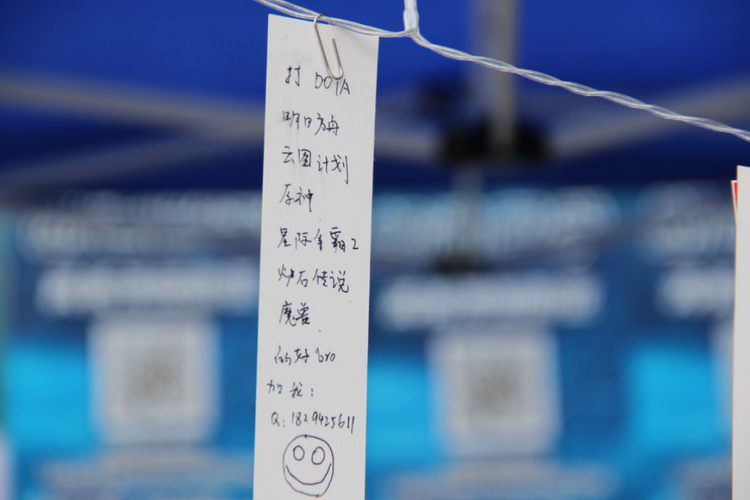 打 DOTA
明日方舟
云图计划
原神
星际争霸2
炉石传说
魔兽
的好bro
加我：
Q：1829425611